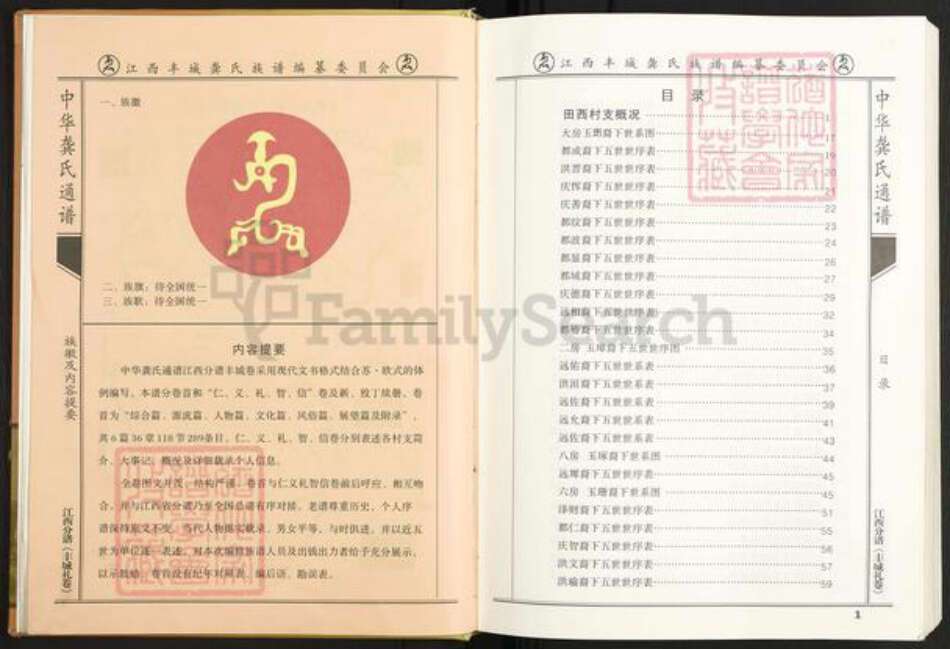 江西丰城龚氏族谱编纂委员会
中华龚氏通谱
族徽及内容提要
江西分谱（丰城礼卷）
一、族徽
二、族旗：待全国统一
三、族歌：待全国统一
内容提要
中华龚氏通谱江西分谱丰城卷采用现代文书格式结合苏·欧式的体
例编写。本谱分卷首和“仁、义、礼、智、信”卷及新、毁丁续册。卷
首为“综合篇、源流篇、人物篇、文化篇、风俗篇、展望篇及附录”，
共6篇36章118节289条目。仁、义、礼、智、信卷分别表述各村支简
介、大事记、概况及详细载录个人信息。
全卷图文并茂、结构严谨，卷首与仁义礼智信卷前后呼应、相互吻
合，并与江西省分谱乃至全国总谱有序对接。老谱尊重历史，个人序
谱保持原文不变，当代人物据实载录，男女平等，与时俱进，并以近五
世为单位逐一表述。对本次编修族谱人员及出钱出力者给予充分展示，
以示鼓励。卷首设有纪年对照表、编后语、勘误表。
FamilySearch
江西丰城龚氏族谱编纂委员会
目 录
田西村支概况 1
大房玉琪裔下世系图 17
都成裔下五世世序表 19
洪晋裔下五世世序表 20
庆恽裔下五世世序表 21
庆善裔下五世世序表 22
都纹裔下五世世序表 23
都波裔下五世世序表 24
都显裔下五世世序表 26
都域裔下五世世序表 27
庆德裔下五世世序表 29
远相裔下五世世序表 32
都椿裔下五世世序表 34
二房 玉璋裔下五世世序图 35
远佑裔下五世世系表
洪洹裔下五世世系表 37
远佐裔下五世世系表 39
远允裔下五世世系表 41
远佐裔下五世世系表 43
八房 玉琢裔下世系图 44
远墀裔下五世世序表 45
六房 玉珊裔下世系图 45
泽则裔下五世世序表 51
都仁裔下五世世序表 55
庆智裔下五世世序表 56
洪文裔下五世世序表 57
洪瑜裔下五世世序表 59
中华龚氏通谱
目录
江西分谱（丰城礼卷）
1